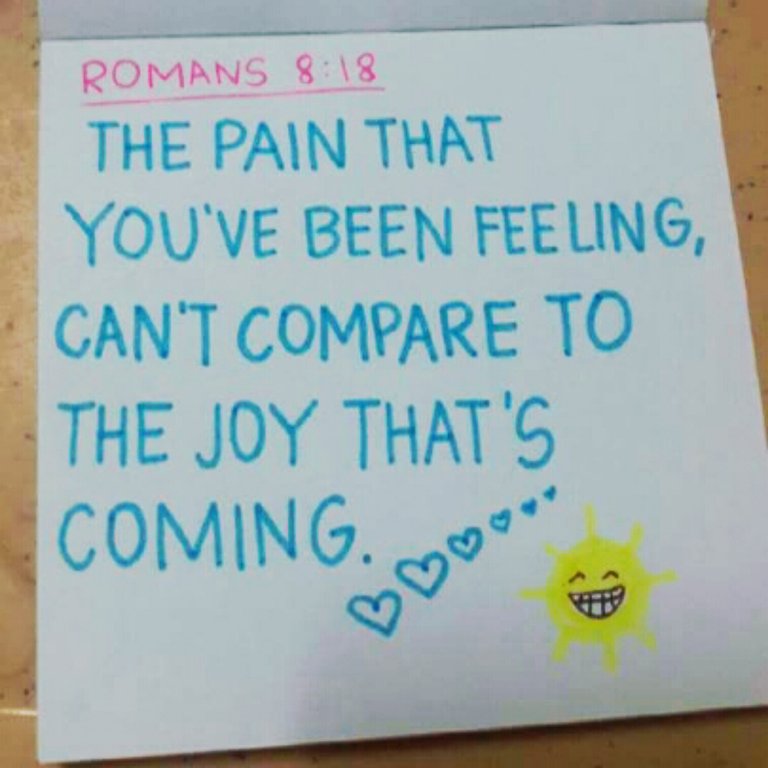 ROMANS 8:18
THE PAIN THAT
YOU'VE BEEN FEELING,
CAN'T COMPARE TO
THE JOY THAT'S
COMING.